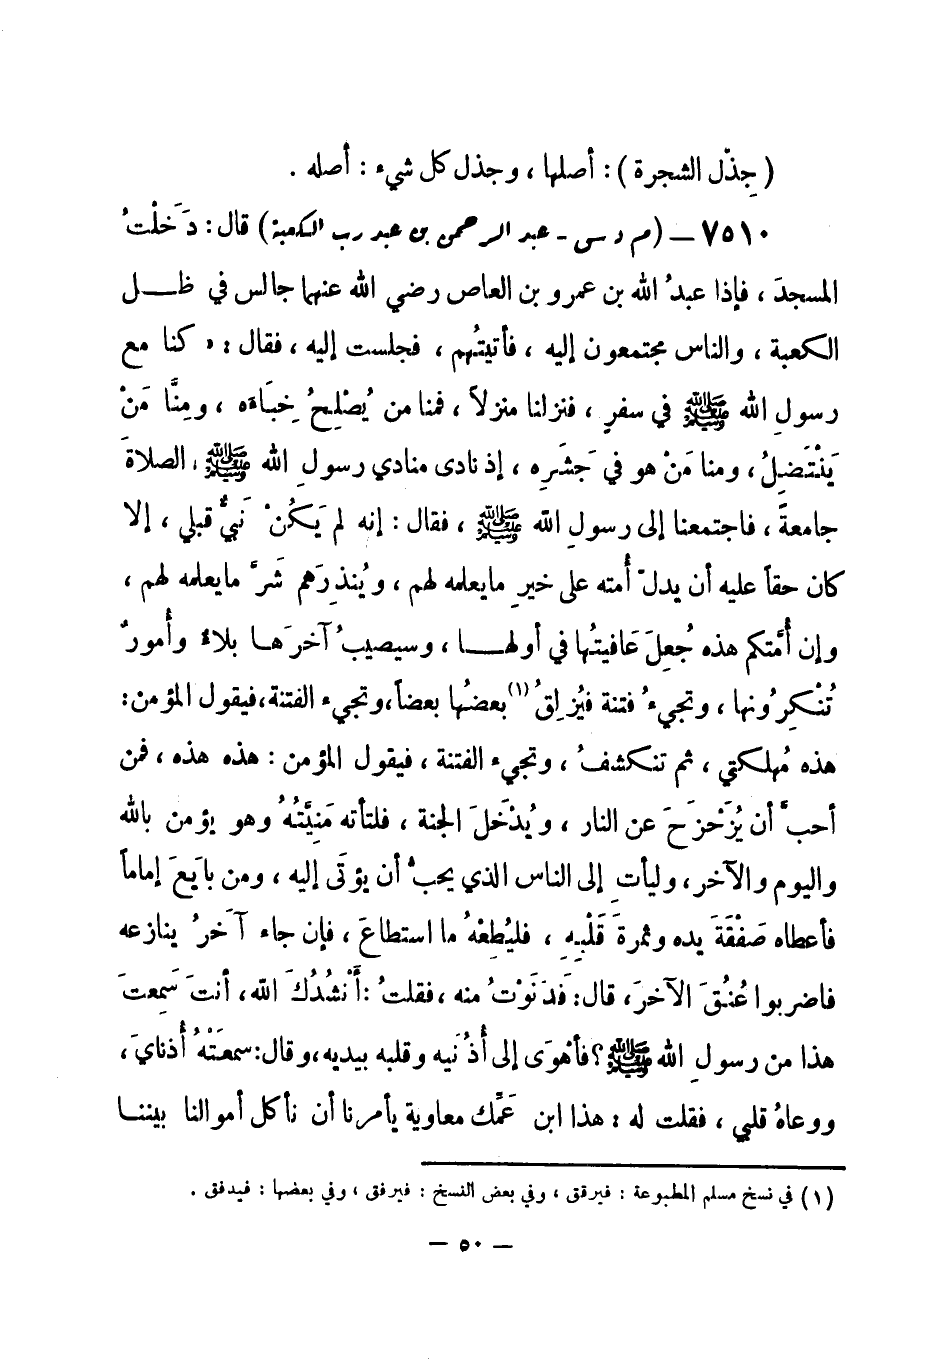 ( جِذْل الشجرة ) : أصلها ، وجذل كل شيء : أصله .
٧٥١٠ – (م د س - عبد الرحمن بن عبد رب الكعبة) قال : دَخَلْتُ
المسجدَ ، فإذا عبدُ الله بن عمرو بن العاص رضي الله عنهما جالس في ظل
الكعبة ، والناس مجتمعون إليه ، فأتيتُهم ، فجلست إليه ، فقال : « كنا مع
رسولِ الله ﷺ في سفرٍ ، فنزلنا منزلاً ، فمنا من يُصْلِحُ خِبَاءَه ، ومِنَّا مَنْ
يَنْتَضِلُ ، ومنا مَنْ هو في جَشَرِه ، إذ نادى منادي رسولِ الله ﷺ ، الصلاةَ
جامعةً ، فاجتمعنا إلى رسولِ الله ﷺ ، فقال : إنه لم يَكُنْ نَبيٌّ قبلي ، إلا
كان حقاً عليه أن يدلّ أُمته على خيرِ مايعلمه لهم ، ويُنذِرَهم شَرَّ مايعلمه لهم ،
وإن أُمَّتكم هذه جُعِلَ عَافيتُها في أولهـا ، وسيصيبُ آخرَهـا بلاءٌ وأُمورٌ
تُنْكِرُونها ، وتجيءُ فتنة فيُزلِقُ (١) بعضُها بعضاً،وتجيء الفتنة،فيقول المؤمن:
هذه مُهلكتي ، ثم تنكشفُ ، وتجيء الفتنة ، فيقول المؤمن : هذه هذه ، فمن
أحبَّ أن يُزَحْزَحَ عن النار ، ويُدْخَلَ الجنة ، فلتأته مَنِيَّتُهُ وهو يؤمن بالله
واليوم والآخر، وليأتِ إلى الناس الذي يحبُّ أن يؤتَى إليه ، ومن بايَعَ إماماً
فأعطاه صَفْقَةَ يده وثمرةَ قَلْبِهِ ، فليُطِعْهُ ما استطاعَ ، فإن جاء آخرُ ينازعه
فاضربوا عُنُقَ الآخرَ، قال: فَدَنَوْتُ منه ،فقلتُ :أَنْشُدُكَ الله، أنتَ سَمِعتَ
هذا من رسولِ الله ﷺ؟ فأهْوَى إلى أُذُنَيه وقلبه بيديه،وقال:سمعَتْهُ أُذنايَ،
ووعاهُ قلبي ، فقلت له : هذا ابن عَمِّك معاوية يأمرنا أن نأكل أموالنا بيننـا
(١) في نسخ مسلم المطبوعة : فيرقق ، وفي بعض النسخ : فيرفق ، وفي بعضها : فيدفق .
– ٥٠ –